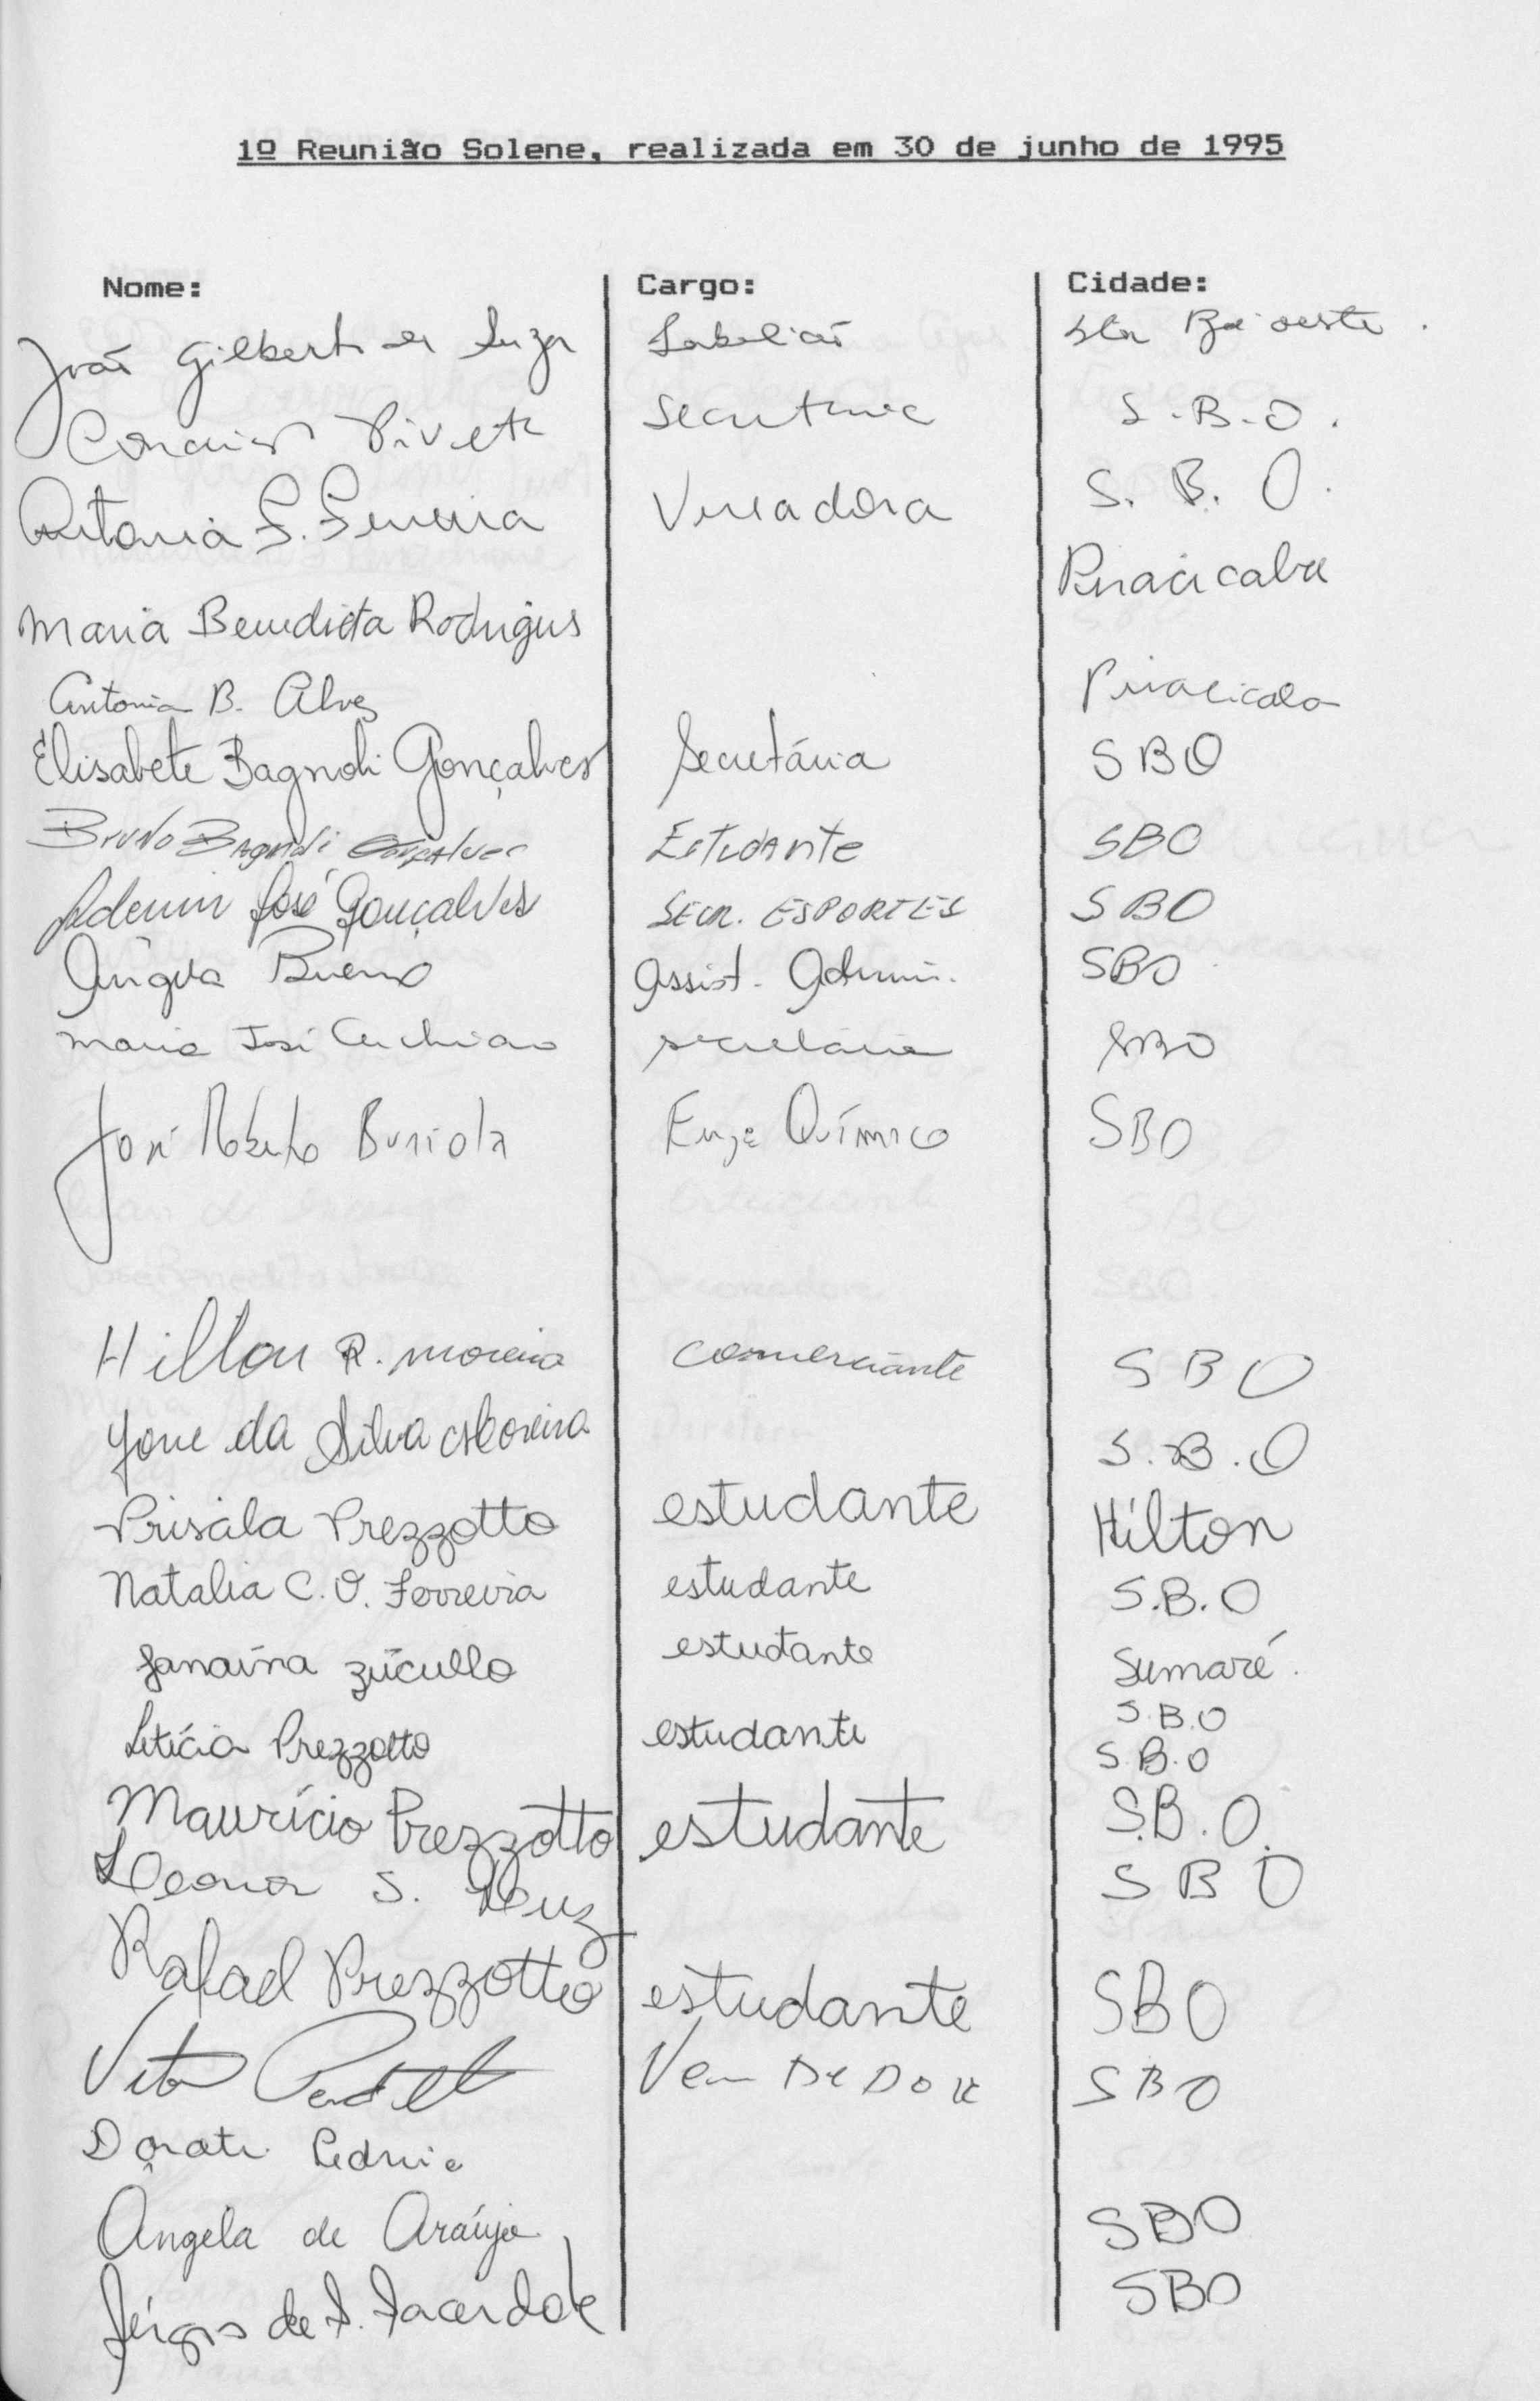 1º Reunião Solene, realizada em 30 de junho de 1995
Nome: Cargo: Cidade:
João Gilberto de Souza
S.B.O.
Antonia Vereadora S. B. O.
Maria Benedicta Rodrigues Piracicaba
Antonia B. Alves Piracicaba
Elisabete Bagnoli Gonçalves Secretária SBO
Bruno Bagnoli Gonçalves Estudante SBO
Ademir José Gonçalves SECR. ESPORTES SBO
Angela Bueno Assist. Admin. SBO
Maria José secretária SBO
José Roberto Engº Químico SBO
Hilton R. Moreira comerciante SBO
Yone da Silva Moreira S.B.O
Priscila Prezzotto estudante Hilton
Natalia C.O. Ferreira estudante S.B.O
Janaína Zúcullo estudante Sumaré.
S.B.O
Letícia Prezzotto estudante S.B.O
Maurício Prezzotto estudante S.B.O.
S. SBO
Rafael Prezzotto estudante SBO
SBO
Angela de Araújo SBO
Sérgio de S. Sacerdote SBO